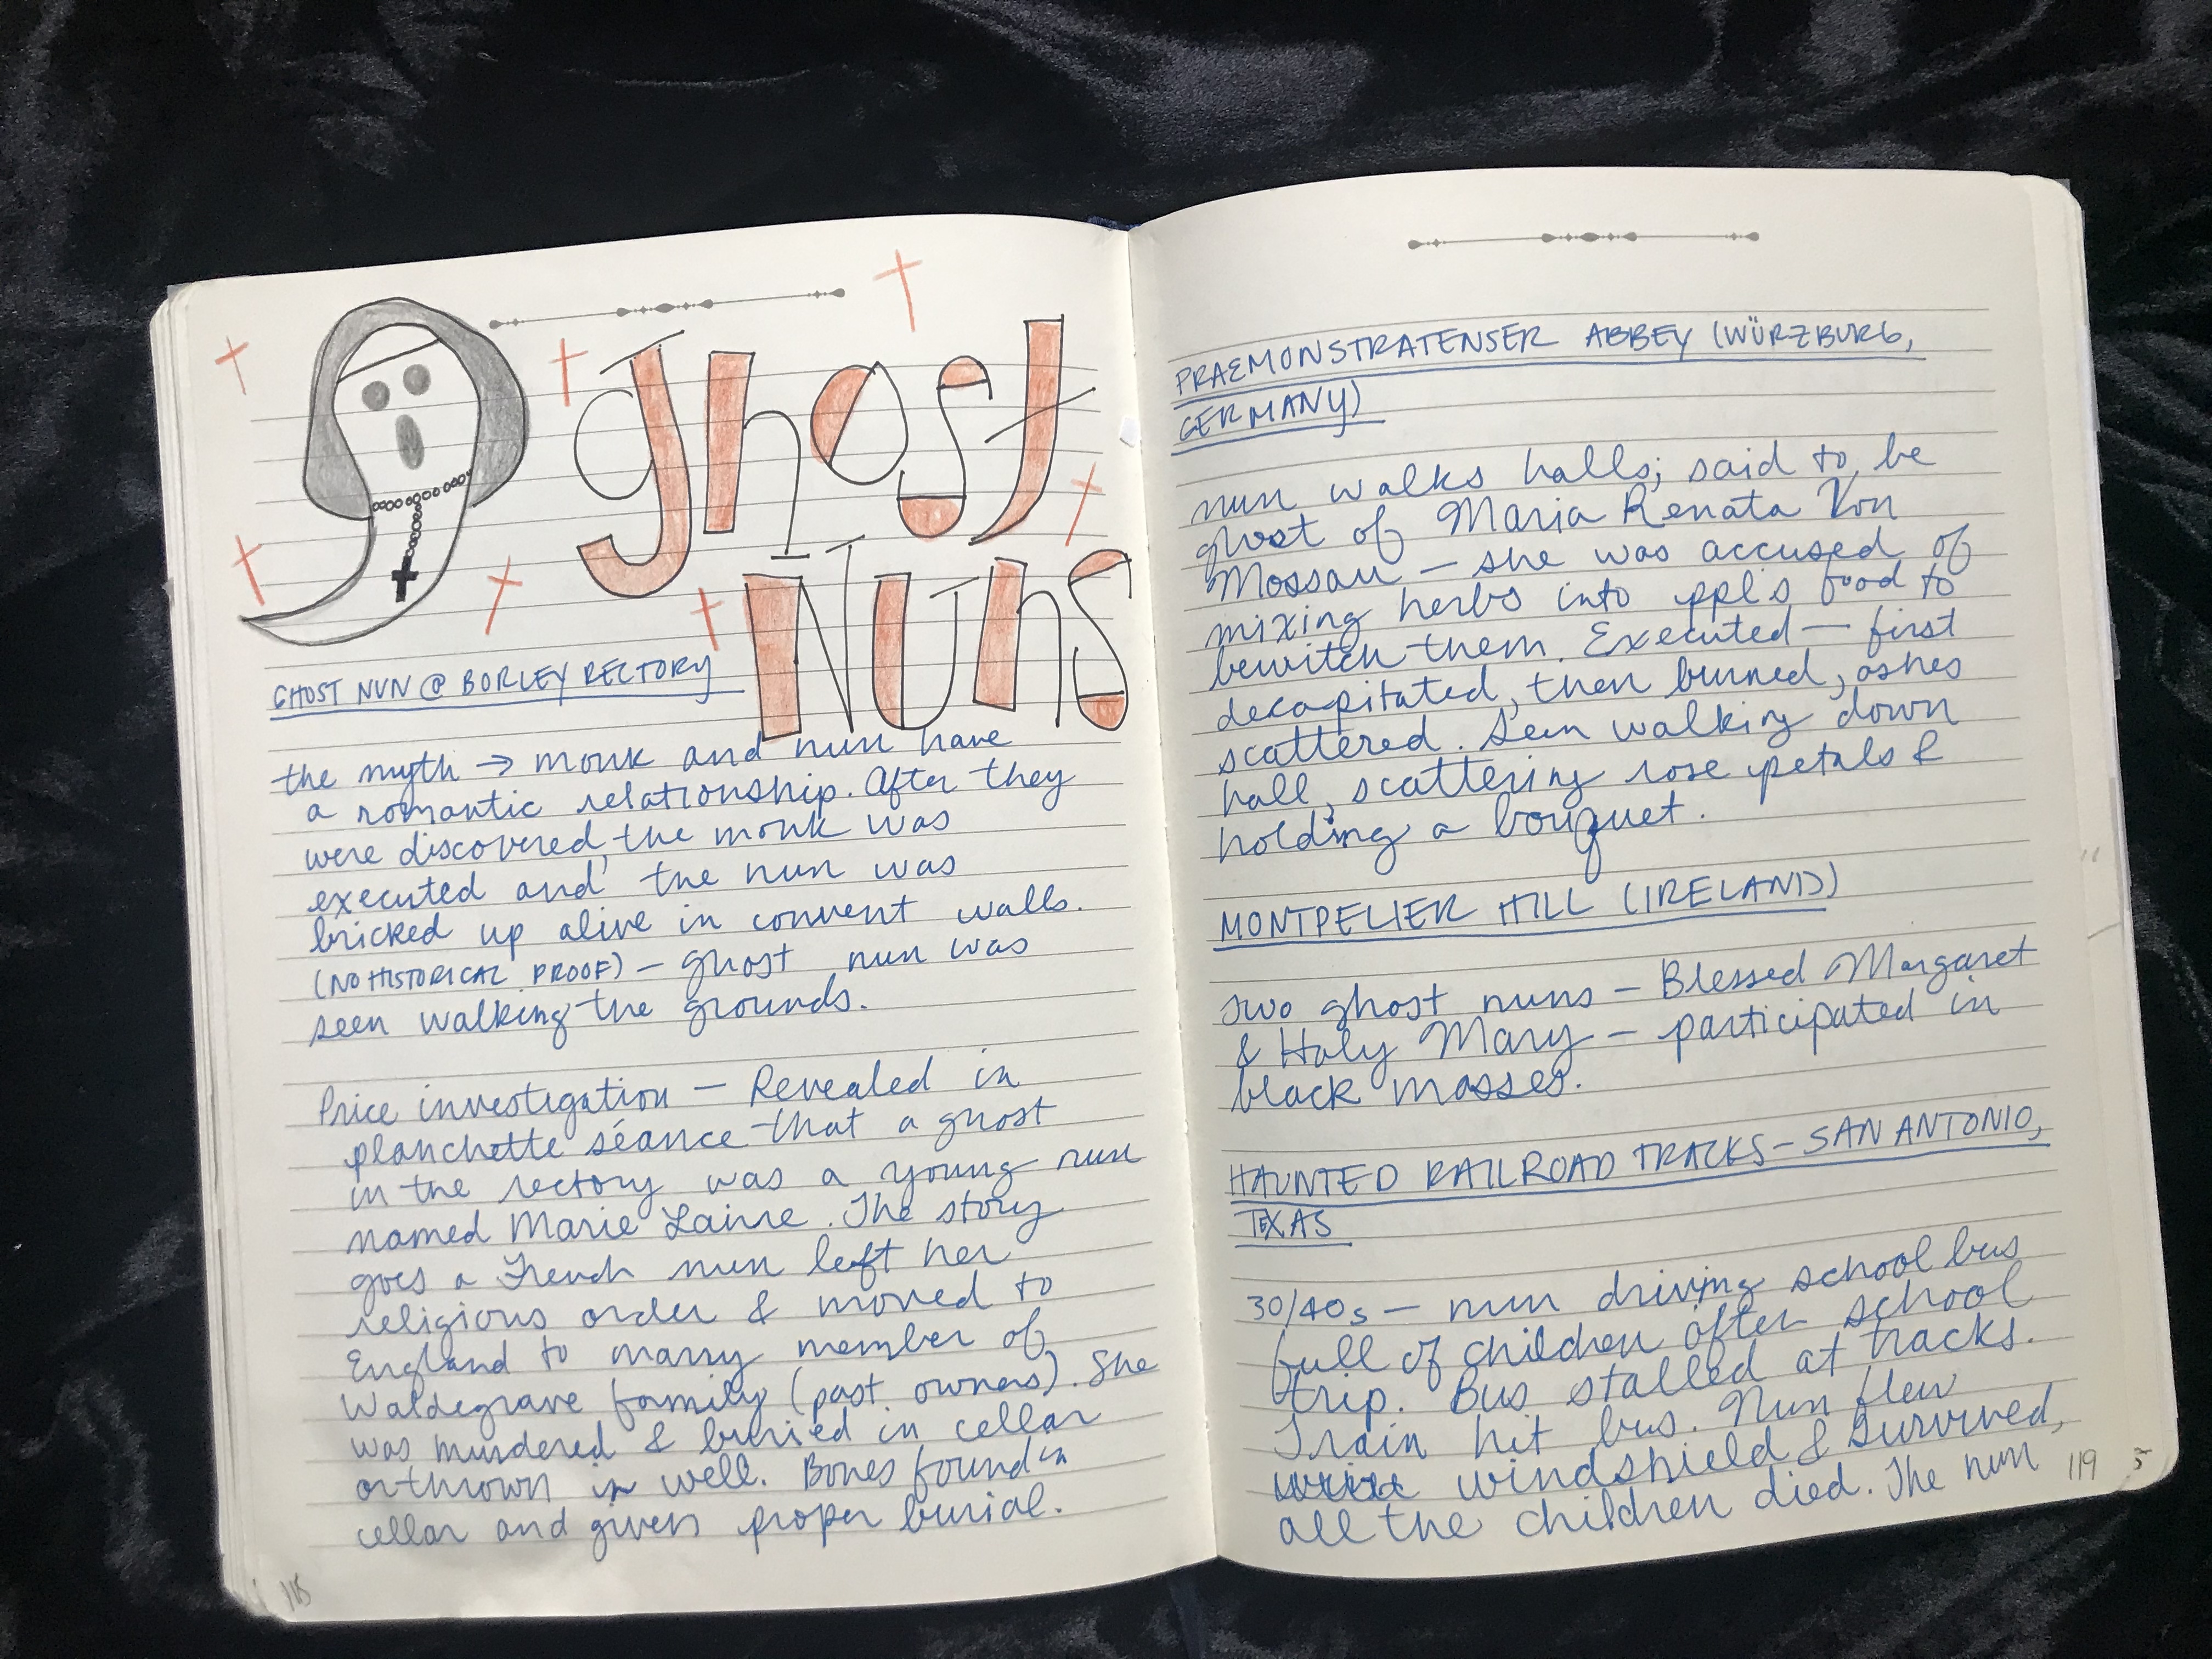 ghost
Nuns
GHOST NUN @ BORLEY RECTORY
the myth → monk and nun have
a romantic relationship. After they
were discovered, the monk was
executed and the nun was
bricked up alive in convent walls.
(NO HISTORICAL PROOF) – ghost nun was
seen walking the grounds.
Price investigation – Revealed in
planchette séance that a ghost
in the rectory was a young nun
named Marie Lairre. The story
goes a French nun left her
religious order & moved to
England to marry member of
Waldegrave family (past owners). She
was murdered & buried in cellar
or thrown in well. Bones found in
cellar and given proper burial.
PRAEMONSTRATENSER ABBEY (WÜRZBURG,
GERMANY)
nun walks halls; said to be
ghost of Maria Renata Von
Mossau – she was accused of
mixing herbs into ppl's food to
bewitch them. Executed – first
decapitated, then burned, ashes
scattered. Seen walking down
hall, scattering rose petals &
holding a bouquet.
MONTPELIER HILL (IRELAND)
Two ghost nuns – Blessed Margaret
& Holy Mary – participated in
black masses.
HAUNTED RAILROAD TRACKS – SAN ANTONIO,
TEXAS
30/40s – nun driving school bus
full of children after school
trip. Bus stalled at tracks.
Train hit bus. Nun flew
windshield & survived,
all the children died. The nun
119